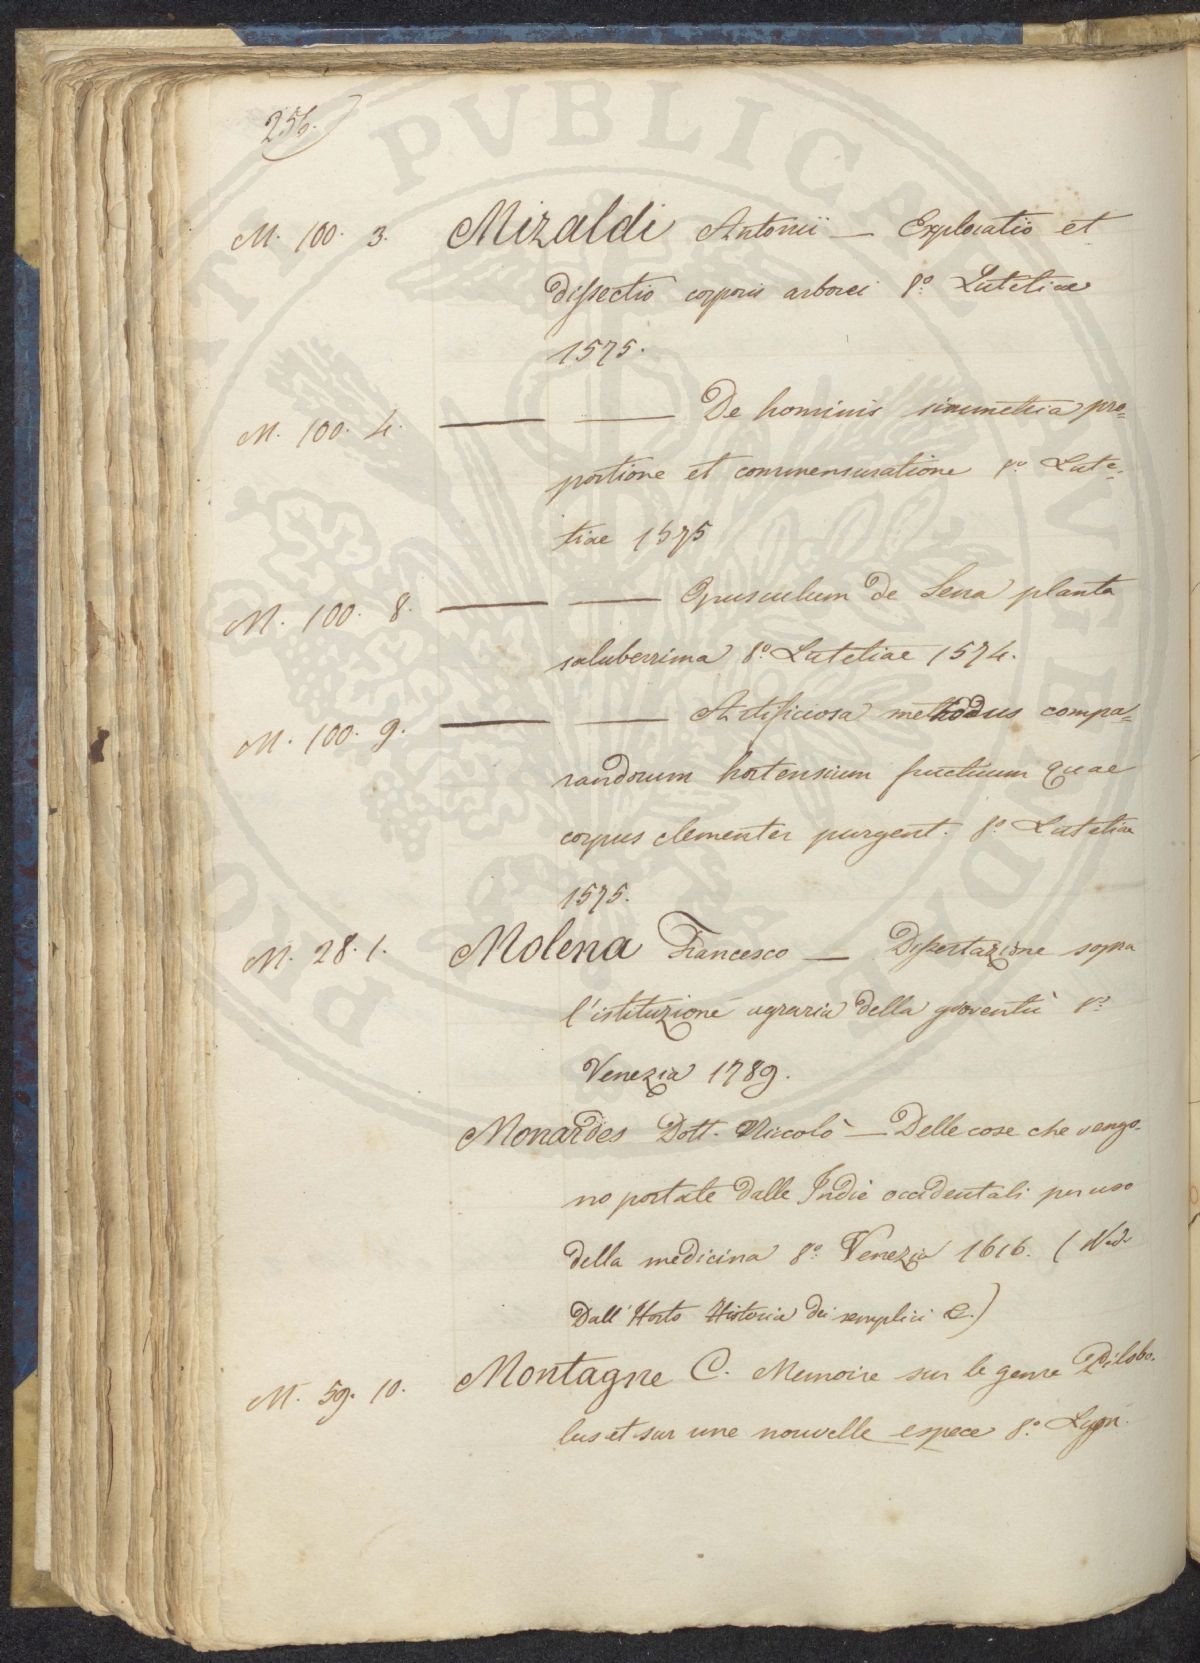 256.
M. 100. 3. Mizaldi Antonii — Exploratio et
dissectio corporis arborei 8.o Lutetiae
1575.
M. 100. 4. — — De hominis simmetria pro=
portione et commensuratione 8.o Lute=
tiae 1575
M. 100. 8. — — Opusculum de Sena planta
saluberrima 8.o Lutetiae 1574.
M. 100. 9. — — Artificiosa methodus compa=
randorum hortensium fructuum quae
corpus clementer purgent. 8.o Lutetiae
1575.
M. 28. 1. Molena Francesco — Dissertazione sopra
l'istituzione agraria della gioventù 8.o
Venezia 1789.
Monardes Dott. Niccolò — Delle cose che vengo=
no portate dalle Indie occidentali per uso
della medicina 8.o Venezia 1616. (Ved.
Dall'Horto Historia dei semplici &.)
M. 59. 10. Montagne C. Memoire sur le genre Pilobo=
lus et sur une nouvelle espece 8.o
PUBLICAE